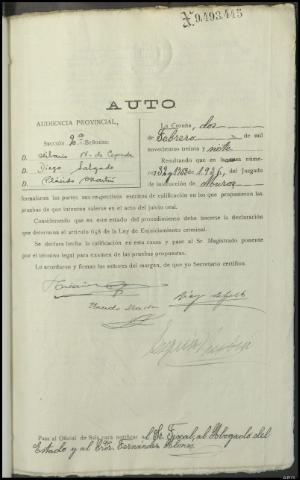 N.0.493.445
AUTO
AUDIENCIA PROVINCIAL,
Sección 2.ª Señores:
D. Hilario N. de Cepeda
D. Diego Salgado
D. Plácido Martín
La Coruña, dos
de Febrero de mil
novecientos treinta y siete
Resultando que en la causa núm.
de 1926, del Juzgado
de instrucción de Muros
formularon las partes sus respectivos escritos de calificación en los que propusieron las
pruebas de que intentan valerse en el acto del juicio oral.
Considerando que en este estado del procedimiento debe hacerse la declaración
que determina el artículo 658 de la Ley de Enjuiciamiento criminal.
Se declara hecha la calificación en esta causa y pase al Sr. Magistrado ponente
por el término legal para examen de las pruebas propuestas.
Lo acordaron y firman los señores del margen, de que yo Secretario certifico.
Pase al Oficial de Sala para notificar al Sr. Fiscal, al Abogado del
Estado y al Pror. Fernández